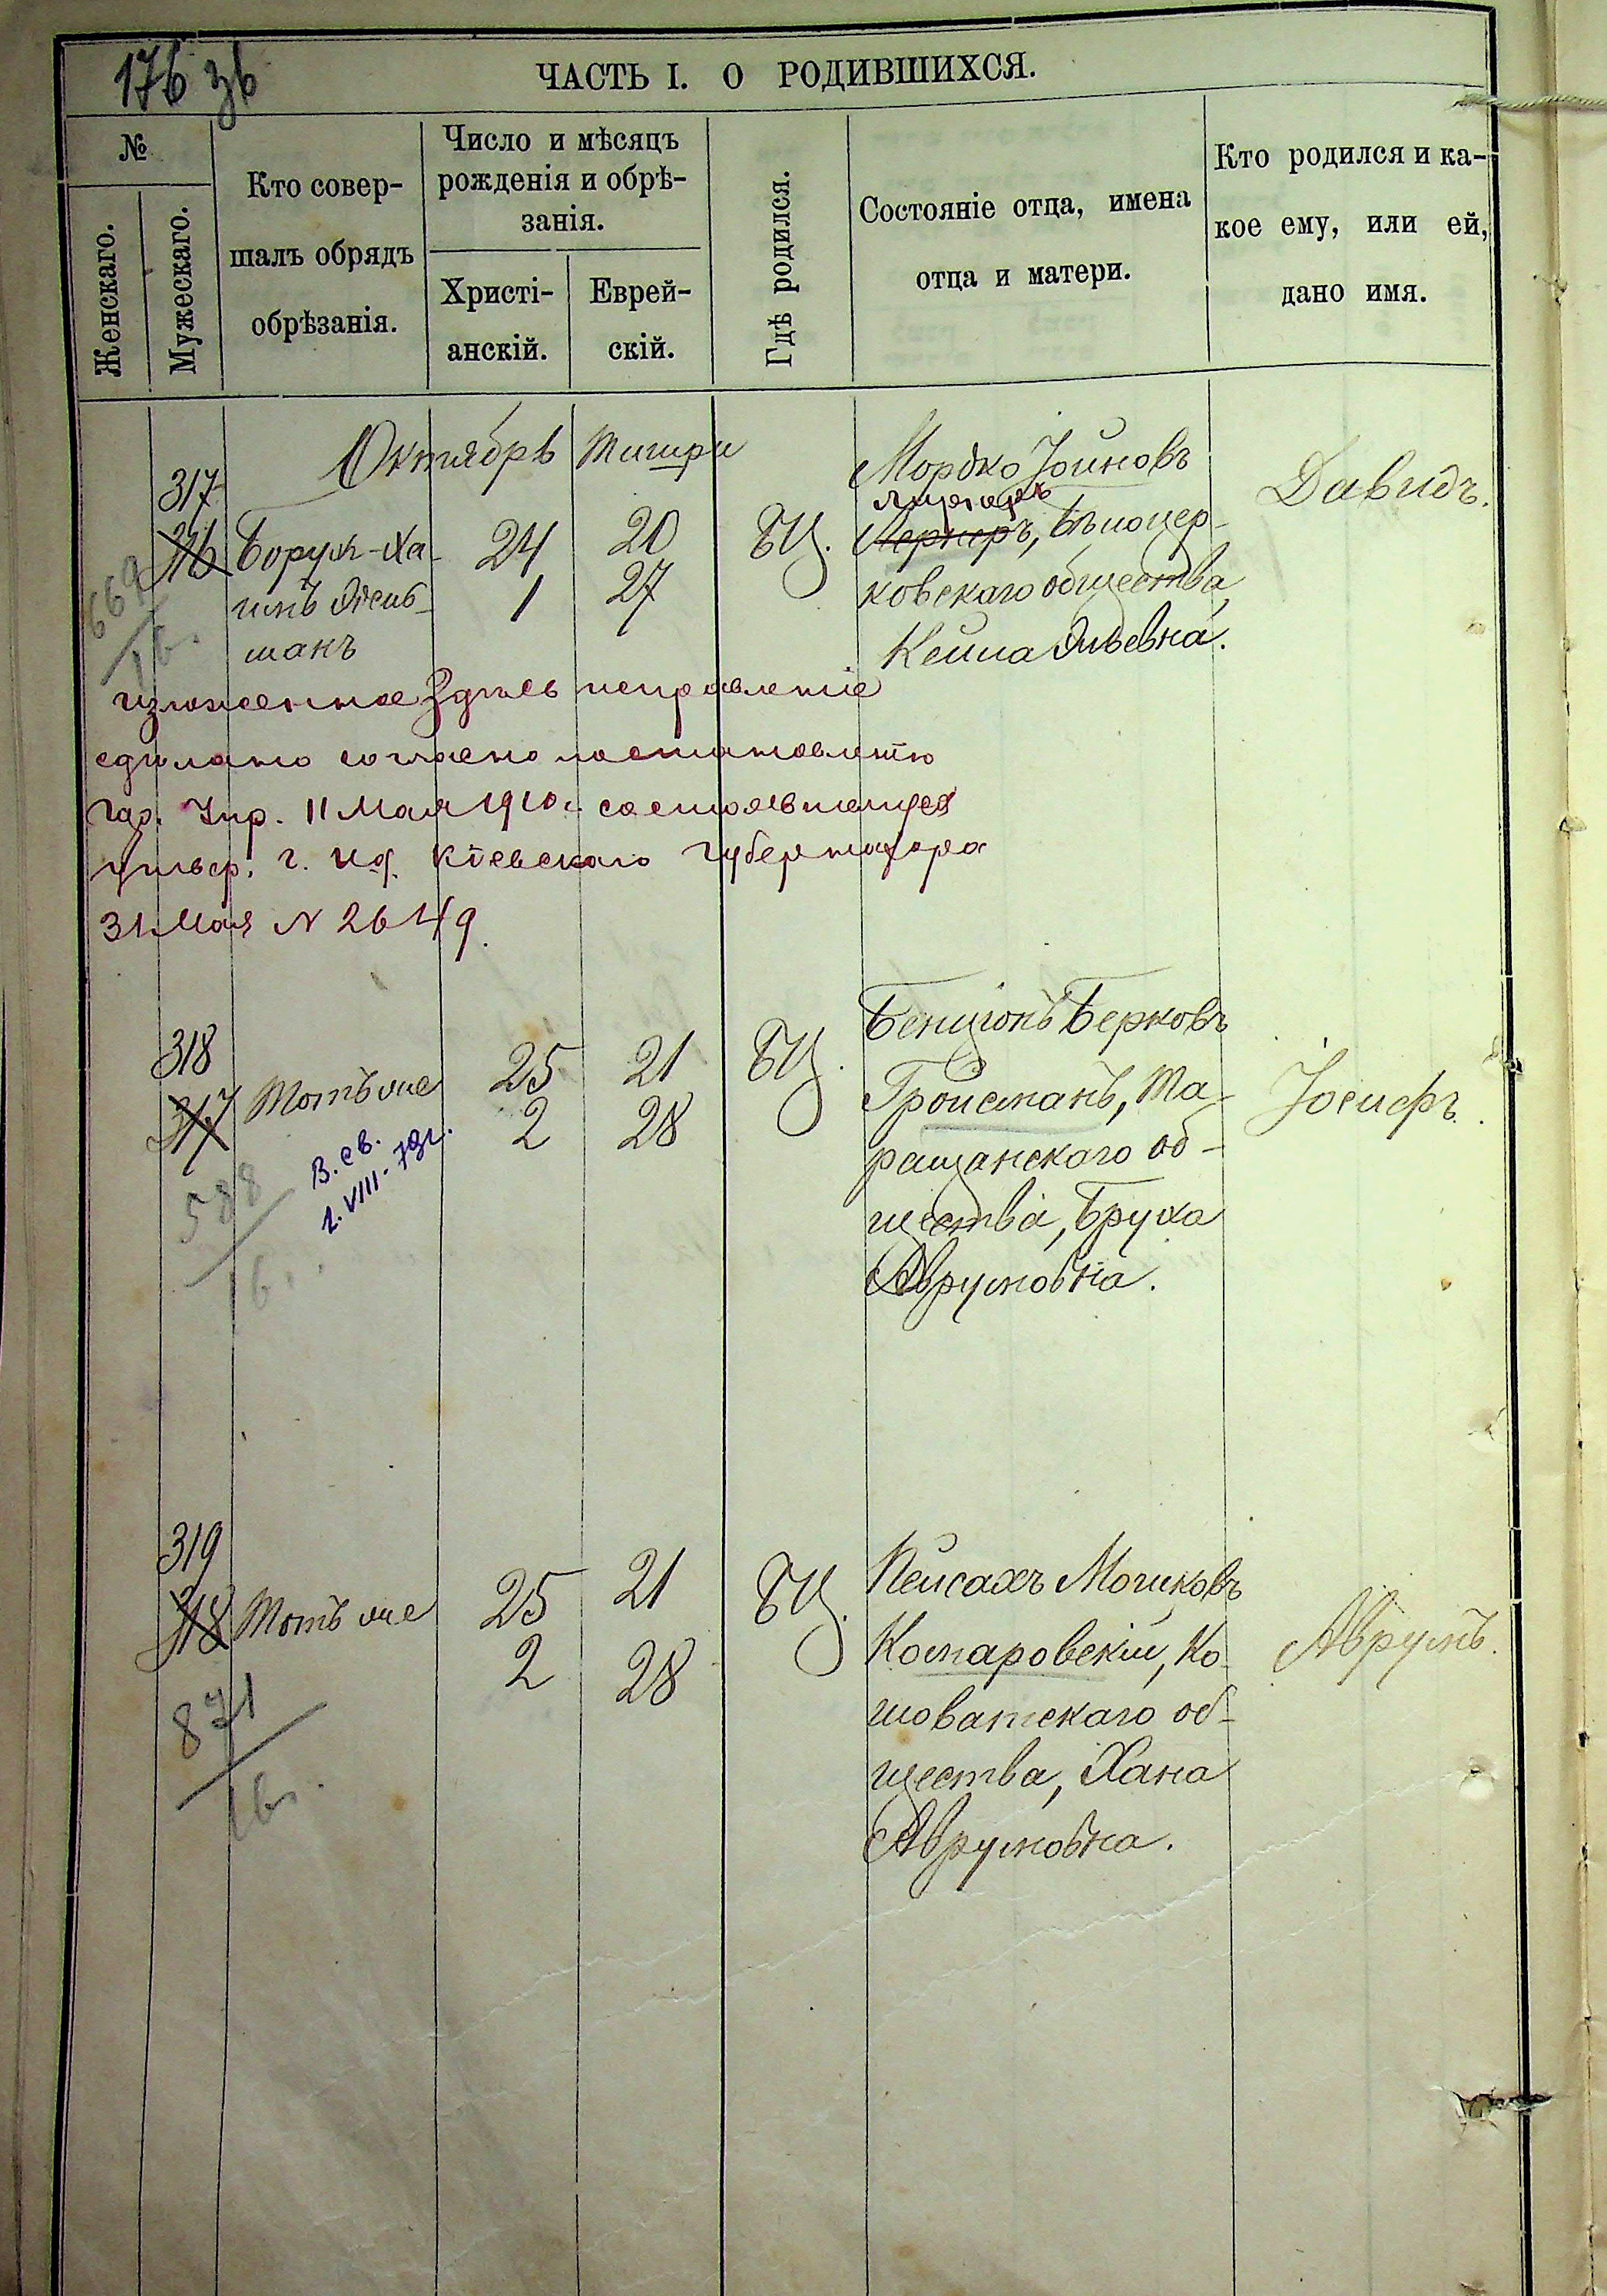 176 зв
ЧАСТЬ I. О РОДИВШИХСЯ.
№
Женскаго.
Мужескаго.
Кто совер-
шалъ обрядъ
обрѣзанія.
Число и мѣсяцъ
рожденія и обрѣ-
занія.
Христі-
анскій.
Еврей-
скій.
Гдѣ родился.
Состояніе отца, имена
отца и матери.
Кто родился и ка-
кое ему, или ей,
дано имя.
Октябрь Тишри
317
316
669
16.
Борух-Ха-
имъ
манъ
24 20
1 27
БЦ.
Мордко Іоиновъ
Лернеръ, Бѣлоцер-
ковскаго общества,
Кейла Эльевна.
Давидъ.
изложенное Здѣсь исправленіе
сдѣлано согласно постановленію
Гор. Упр. 11 Мая 1910 г. состоявшемуся
г. И.д. Кіевскаго Губернатора
31 Мая N 2649.
318
317
588
16.
Тотъ же
В. св.
1. VIII-79г.
25 21
2 28
БЦ.
Бенціонъ Берковъ
Гройсманъ, Та-
ращанскаго об-
щества, Бруха
Аврумовна.
Іосифъ.
319
318
871
16.
Тотъ же
25 21
2 28
БЦ.
Пейсахъ Мошковъ
Комаровскій, Ко-
шоватскаго об-
щества, Хана
Аврумовна.
Аврумъ.